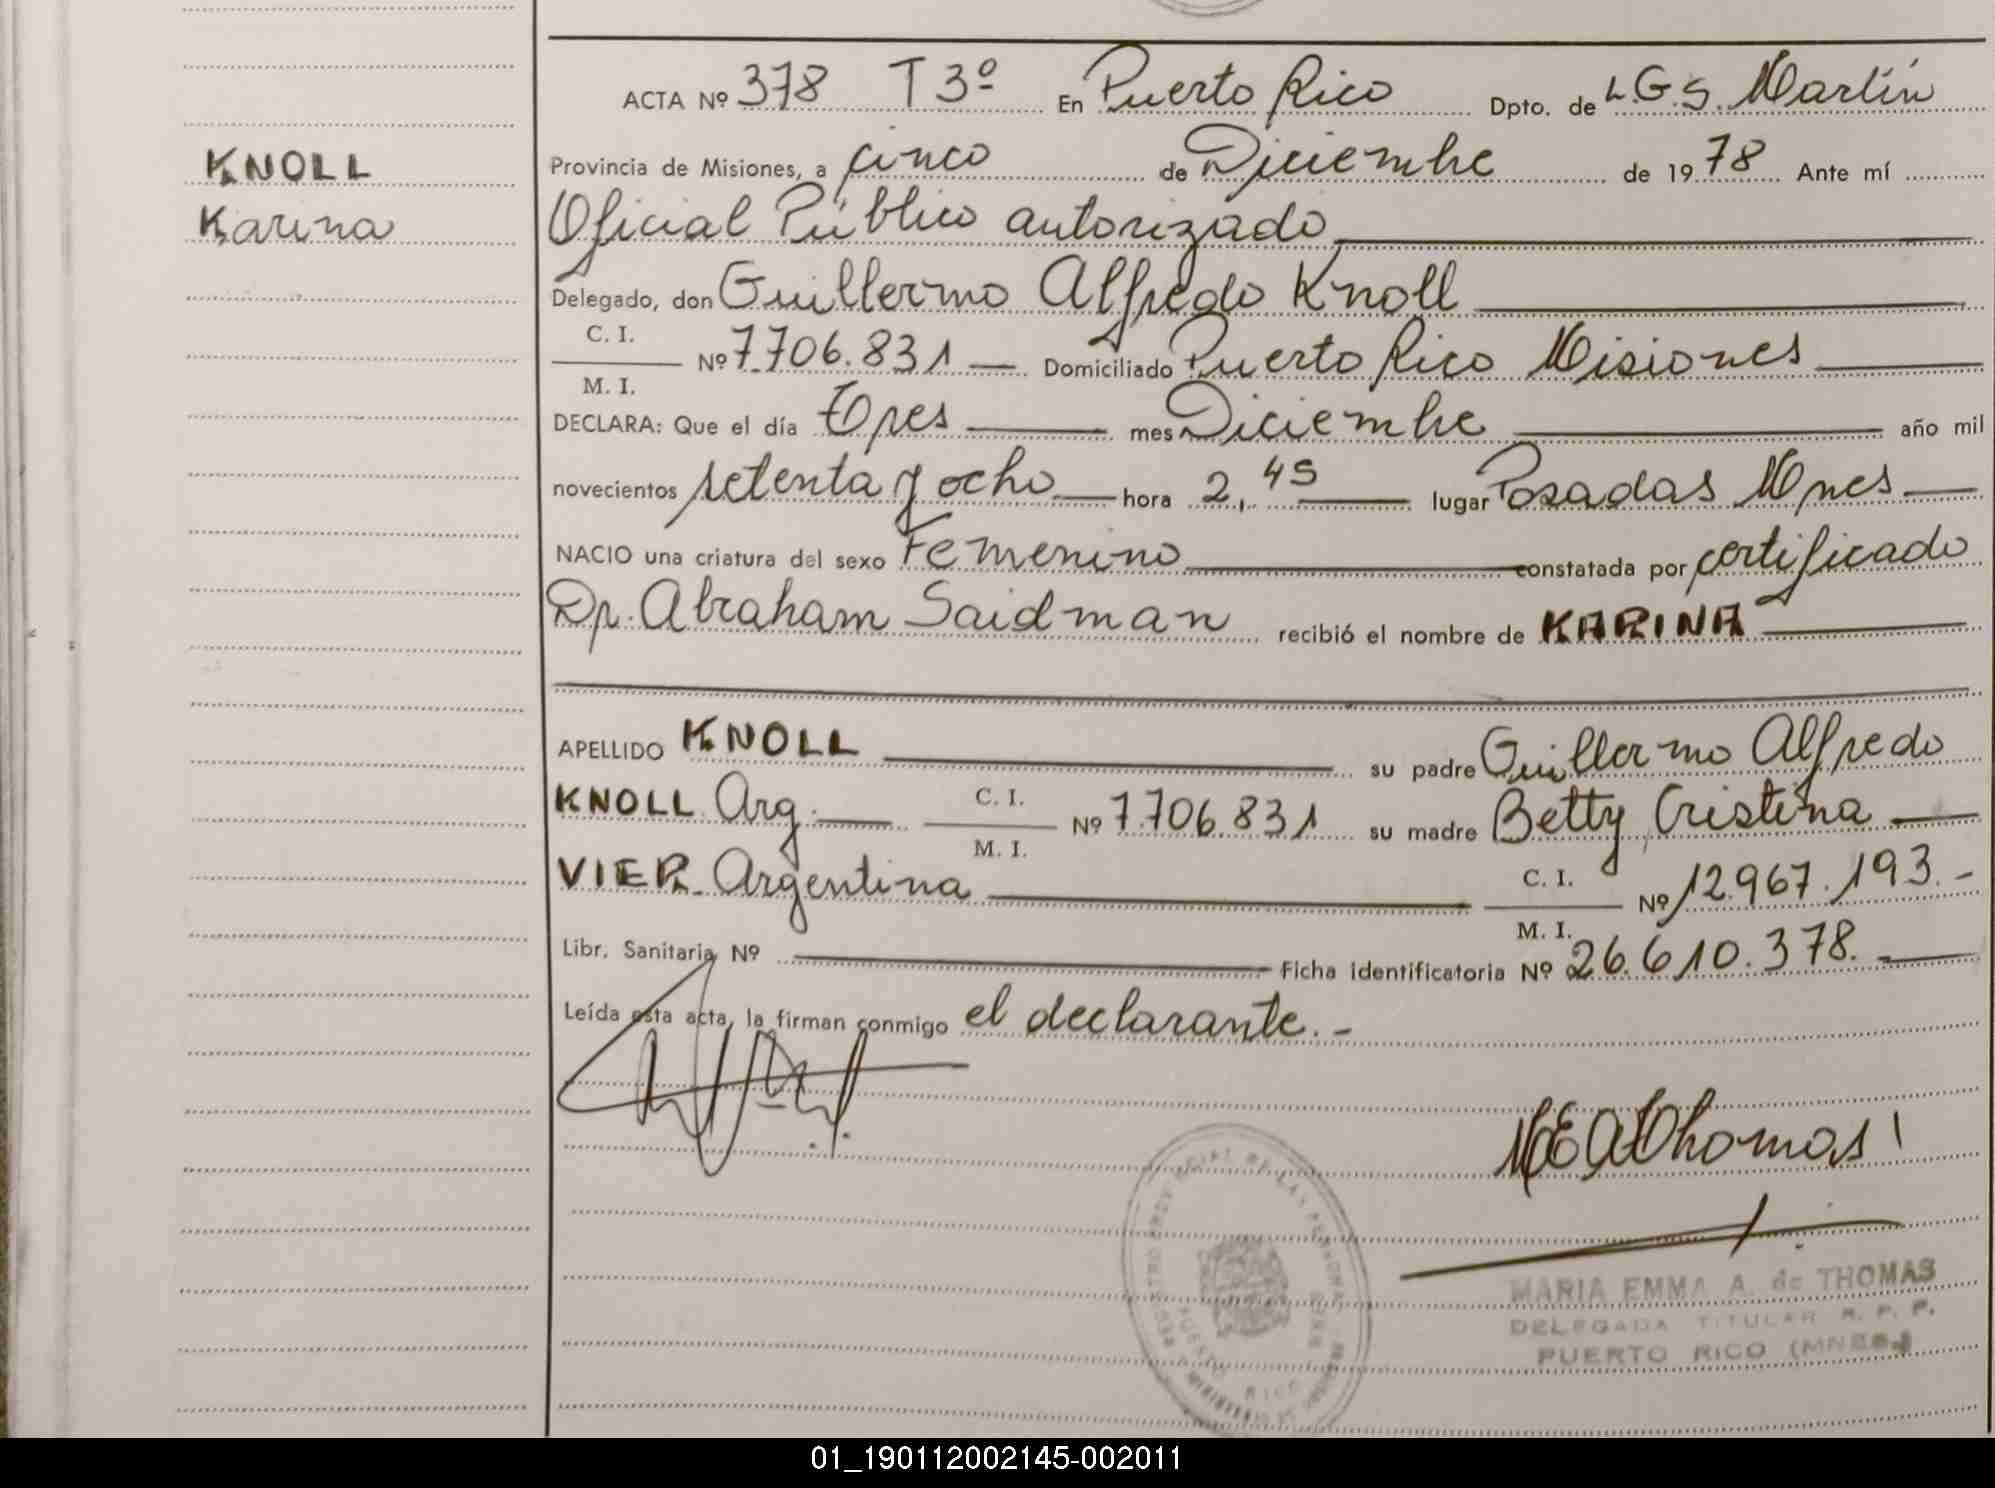 KNOLL
Karina
ACTA Nº 378 T 3º En Puerto Rico Dpto. de L.G.S. Martín
Provincia de Misiones, a cinco de Diciembre de 1978 Ante mí
Oficial Público autorizado
Delegado, don Guillermo Alfredo Knoll
C. I.
M. I.
Nº 7.706.831 Domiciliado Puerto Rico Misiones
DECLARA: Que el día Tres mes Diciembre año mil
novecientos setenta y ocho hora 2,45 lugar Posadas Mnes
NACIO una criatura del sexo Femenino constatada por certificado
Dr. Abraham Saidman recibió el nombre de KARINA
APELLIDO KNOLL su padre Guillermo Alfredo
KNOLL Arg. C. I. M. I. Nº 7.706.831 su madre Betty Cristina
VIER Argentina C. I. M. I. Nº 12.967.193.-
Libr. Sanitaria Nº Ficha identificatoria Nº 26.610.378.
Leída esta acta, la firman conmigo el declarante.-
MEA Thomas
MARIA EMMA A. de THOMAS
DELEGADA TITULAR R. P. P.
PUERTO RICO (MNES.)
01_190112002145-002011